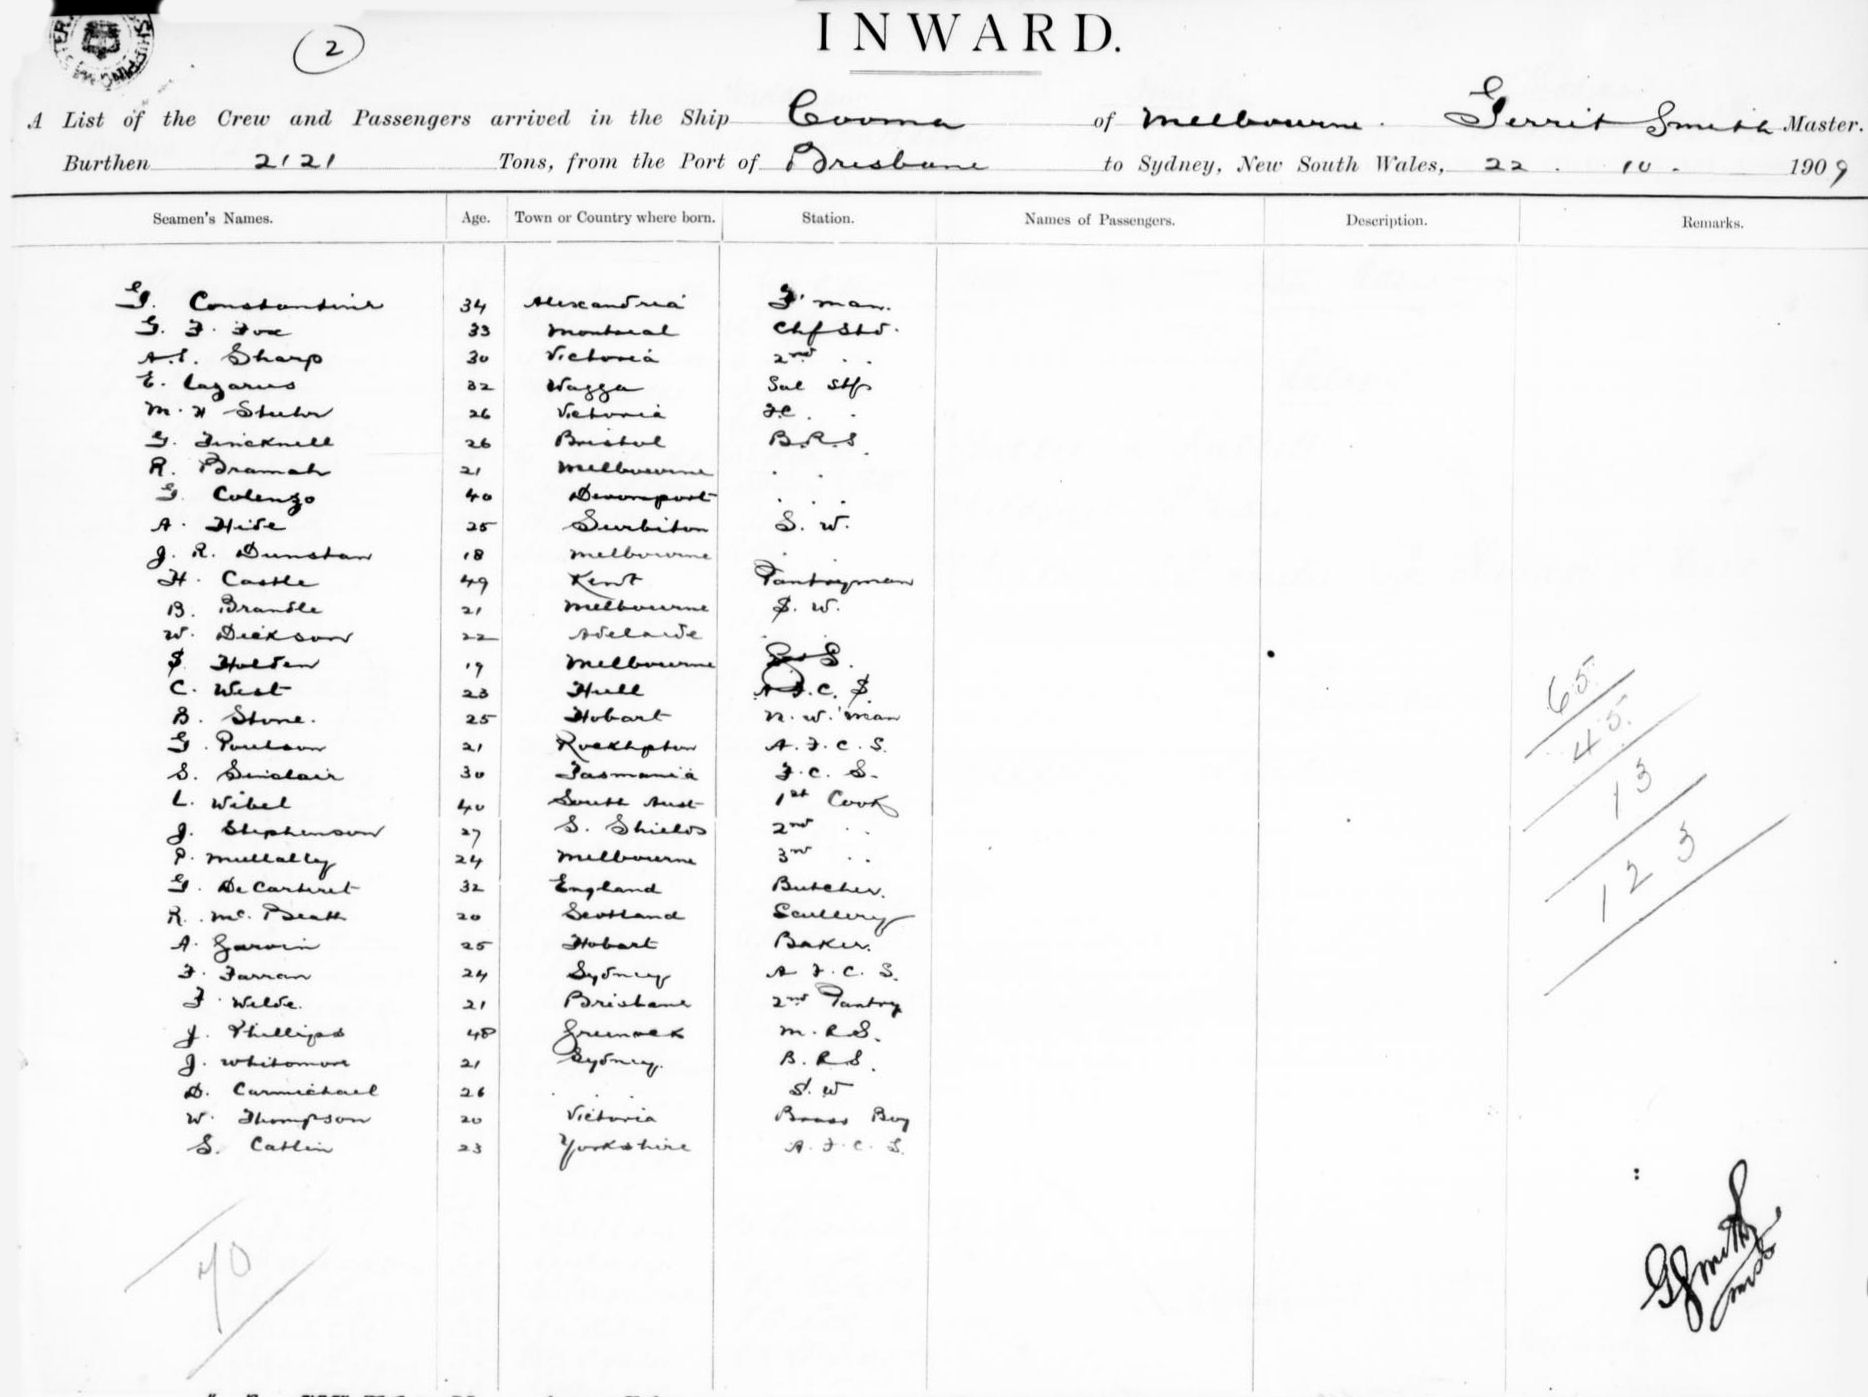 (2)
INWARD.
A List of the Crew and Passengers arrived in the Ship Cooma of Melbourne. Gerrit Smith Master.
Burthen 2121 Tons, from the Port of Brisbane to Sydney, New South Wales, 22. 10. 1909
Seamen's Names. Age. Town or Country where born. Station. Names of Passengers. Description. Remarks.
G. Constantine 34 Alexandria F'man.
G. F. Fox 33 Montreal Chf Std.
A.E. Sharp 30 Victoria 2nd . .
E. Lazarus 32 Wagga Sal
M. H 26 Victoria F.C. .
G. Tincknell 26 Bristol B.R.S.
R. Bramah 21 Melbourne . .
G. Colenzo 40 Devonport . . .
A. Hide 25 Surbiton S. W.
J. R. Dunstan 18 Melbourne . .
H. Castle 49 Kent Pantryman
B. Brandle 21 Melbourne S. W.
W. Dickson 22 Adelaide .
S. Holden 19 Melbourne S.
C. West 23 Hull A.F.C. S.
B. Stone. 25 Hobart N. W. man
G. Poulson 21 Rockhpton A. F. C. S.
S. Sinclair 30 Tasmania F. C. S.
L. Wibel 40 South Aust 1st Cook
J. Stephenson 27 S. Shields 2nd . .
P. Mullally 24 Melbourne 3rd . .
G. De Carteret 32 England Butcher.
R. Mc. Beath 20 Scotland Scullery
A. Garvin 25 Hobart Baker.
F. Farran 24 Sydney A F. C. S.
F. Wilde. 21 Brisbane 2nd Pantry
J. Phillips 48 Greenock M. R. S.
J. Whitomore 21 Sydney. B. R. S.
D. Carmichael 26 . . S. W
W. Thompson 20 Victoria Brass Boy
S. Catlin 23 Yorkshire A. F. C. S.
65
45
13
123
40
G Smith